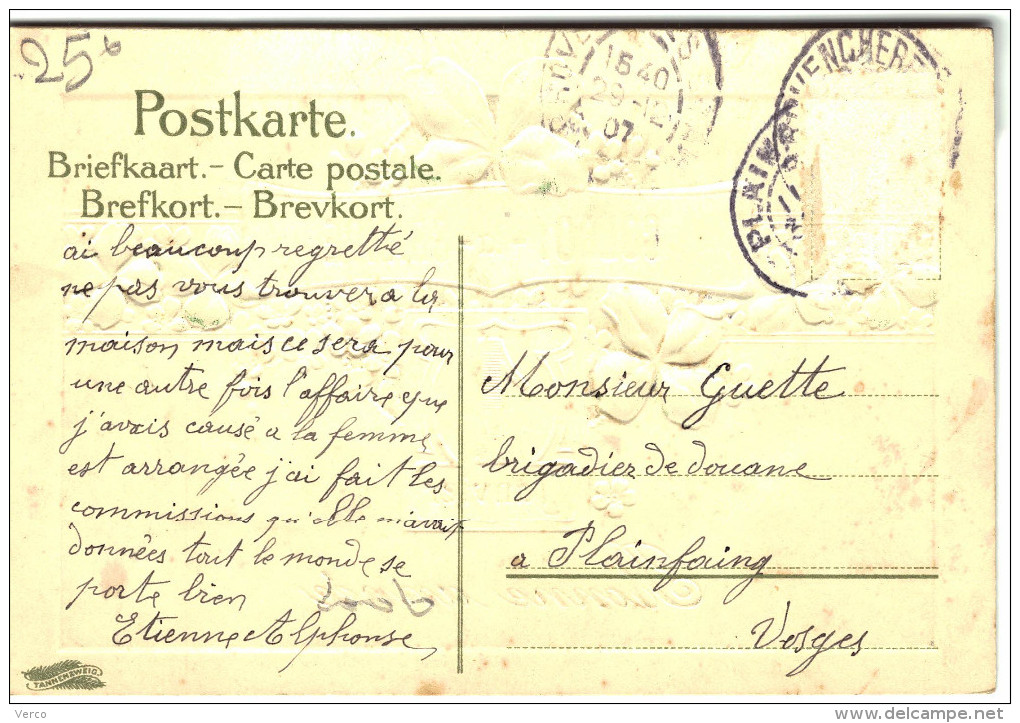 25
15 40
07
Postkarte.
Briefkaart.- Carte postale.
Brefkort.- Brevkort.
ai beaucoup regretté
ne pas vous trouver a la
maison mais ce sera pour
une autre fois l'affaire que
j'avais causé a la femme
est arrangée j'ai fait les
commissions qu'elle m'avait
données tout le monde se
porte bien
Etienne Alphonse
Monsieur Guette
brigadier de douane
a Plainfaing
Vosges
TANNENZWEIG
Verco
www.delcampe.net